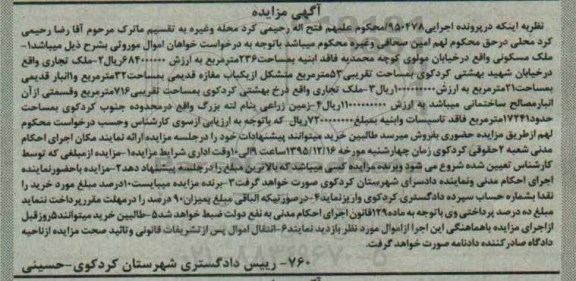 آگهی مزایده
نظربه اینکه درپرونده اجرایی۹۵۰۴۷۸محکوم علیهم فتح اله رحیمی کرد محله وغیره به تقسیم ماترک مرحوم آقا رضا رحیمی
کرد محلی درحق محکوم لهم امین صحافی وغیره محکوم میباشد باتوجه به درخواست خواهان اموال موروثی بشرح ذیل میباشد۱-
ملک مسکونی واقع درخیابان مولوی کوچه محمدیه فاقد ابنیه بمساحت۲۳۶مترمربع به ارزش ۶۸۴۰۰۰۰۰۰ریال۲-ملک تجاری واقع
درخیابان شهید بهشتی کردکوی بمساحت تقریبی۵۳مترمربع متشکل ازیکباب مغازه قدیمی بمساحت۳۲مترمربع و۱انبار قدیمی
بمساحت۲۱مترمربع به ارزش ریال۳-ملک تجاری واقع درخ بهشتی کردکوی بمساحت تقریبی۷۱۶مترمربع وقسمتی ازآن
انبارمصالح ساختمانی میباشد به ارزش ریال۴-زمین زراعی بنام لته بزرگ واقع درمحدوده جنوب کردکوی بمساحت
حدود۱۷۲۴۱مترمربع فاقد تاسیسات وابنیه بمبلغ ریال که باتوجه به ارزیابی ازسوی کارشناس وحسب درخواست محکوم
لهم ازطریق مزایده حضوری بفروش میرسد طالبین خرید میتوانند پیشنهادات خود را درجلسه مزایده ارائه نمایند مکان اجرای احکام
مدنی شعبه ۲حقوقی کردکوی زمان چهارشنبه مورخه ۱۳۹۵/۱۲/۱۶ساعت ۹الی۱۰وقت اداری شرایط مزایده۱-مزایده ازمبلغی که توسط
کارشناس تعیین شده شروع می شود وبرنده مزایده کسی میباشد که بالاترین مبلغ را درجلسه پیشنهاد دهد۲-مزایده باحضورنماینده
اجرای احکام مدنی ونماینده دادسرای شهرستان کردکوی صورت خواهد گرفت۳-برنده مزایده میبایست۱۰درصد مبلغ مورد خرید را
نقدا بشماره حساب سپرده دادگستری کردکوی واریزنماید۴-درصورتیکه الباقی مبلغ بمیزان۹۰ درصد را درمهلت مقرر پرداخت ننماید
مبلغ ده درصد پرداختی وی باتوجه به ماده۱۲۹قانون اجرای احکام مدنی به نفع دولت ضبط خواهد شد۵-طالبین خرید میتوانند۵روزقبل
ازاجرای مزایده باهماهنگی این اجرا ازاموال مورد نظر بازدید نمایند۶-انتقال اموال پس ازتشریفات قانونی وتائید صحت مزایده ازناحیه
دادگاه صادرکننده دادنامه صورت خواهد گرفت.
۷۶۰- رییس دادگستری شهرستان کردکوی-حسینی